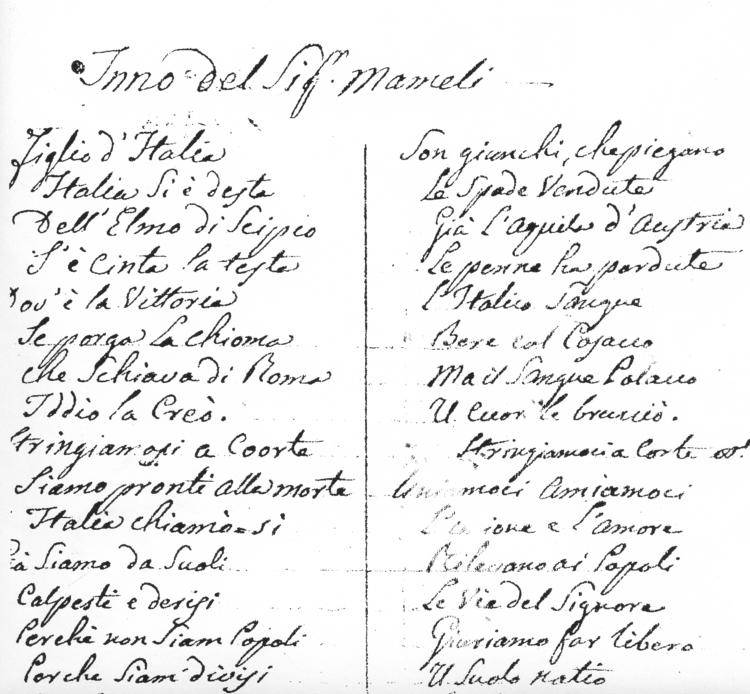 Inno del Sigr. Mameli
Figlio d'Italia
Italia Si è desta
Dell'Elmo di Scipio
S'è Cinta la testa
Dov'è la Vittoria
Se porga La Chioma
Che Schiava di Roma
Iddio la Creò.
Stringiamoci a Coorte
Siamo pronti alla morte
Italia chiamò=si
Siamo da Suoli
Calpesti e derisi
Perchè non Siam Popoli
Perche Siam divisi
Son giunchi, che piegano
Le Spade Vendute
Già L'Aquila d'Austria
Le penne ha perdute
l'Italico Sangue
Bere col Cosacco
Ma il Sangue Polacco
Il Cuor le bruciò.
Stringiamoci a Corte
Uniamoci Amiamoci
L'unione e l'amore
Rilevano ai Popoli
Le Vie del Signore
Giuriamo far libero
Il Suolo natio